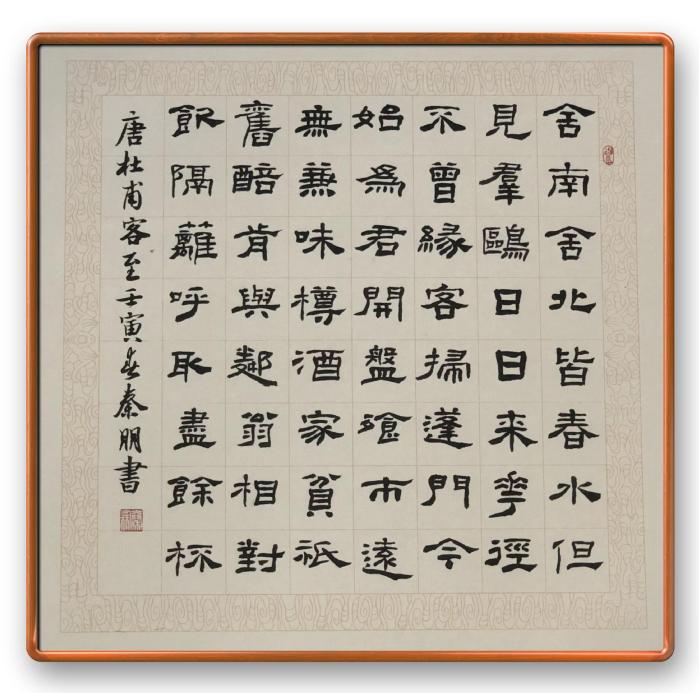 舍南舍北皆春水但
見羣鷗日日来花徑
不曾緣客掃蓬門今
始爲君開盤飧市遠
無兼味樽酒家貧祇
舊醅肯與鄰翁相對
飲隔籬呼取盡餘杯
唐杜甫客至壬寅春秦朋書